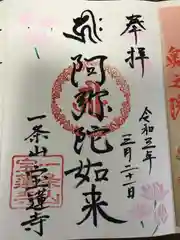 奉拝
令和三年
三月二十一日
阿弥陀如来
一条山
宝蓮寺